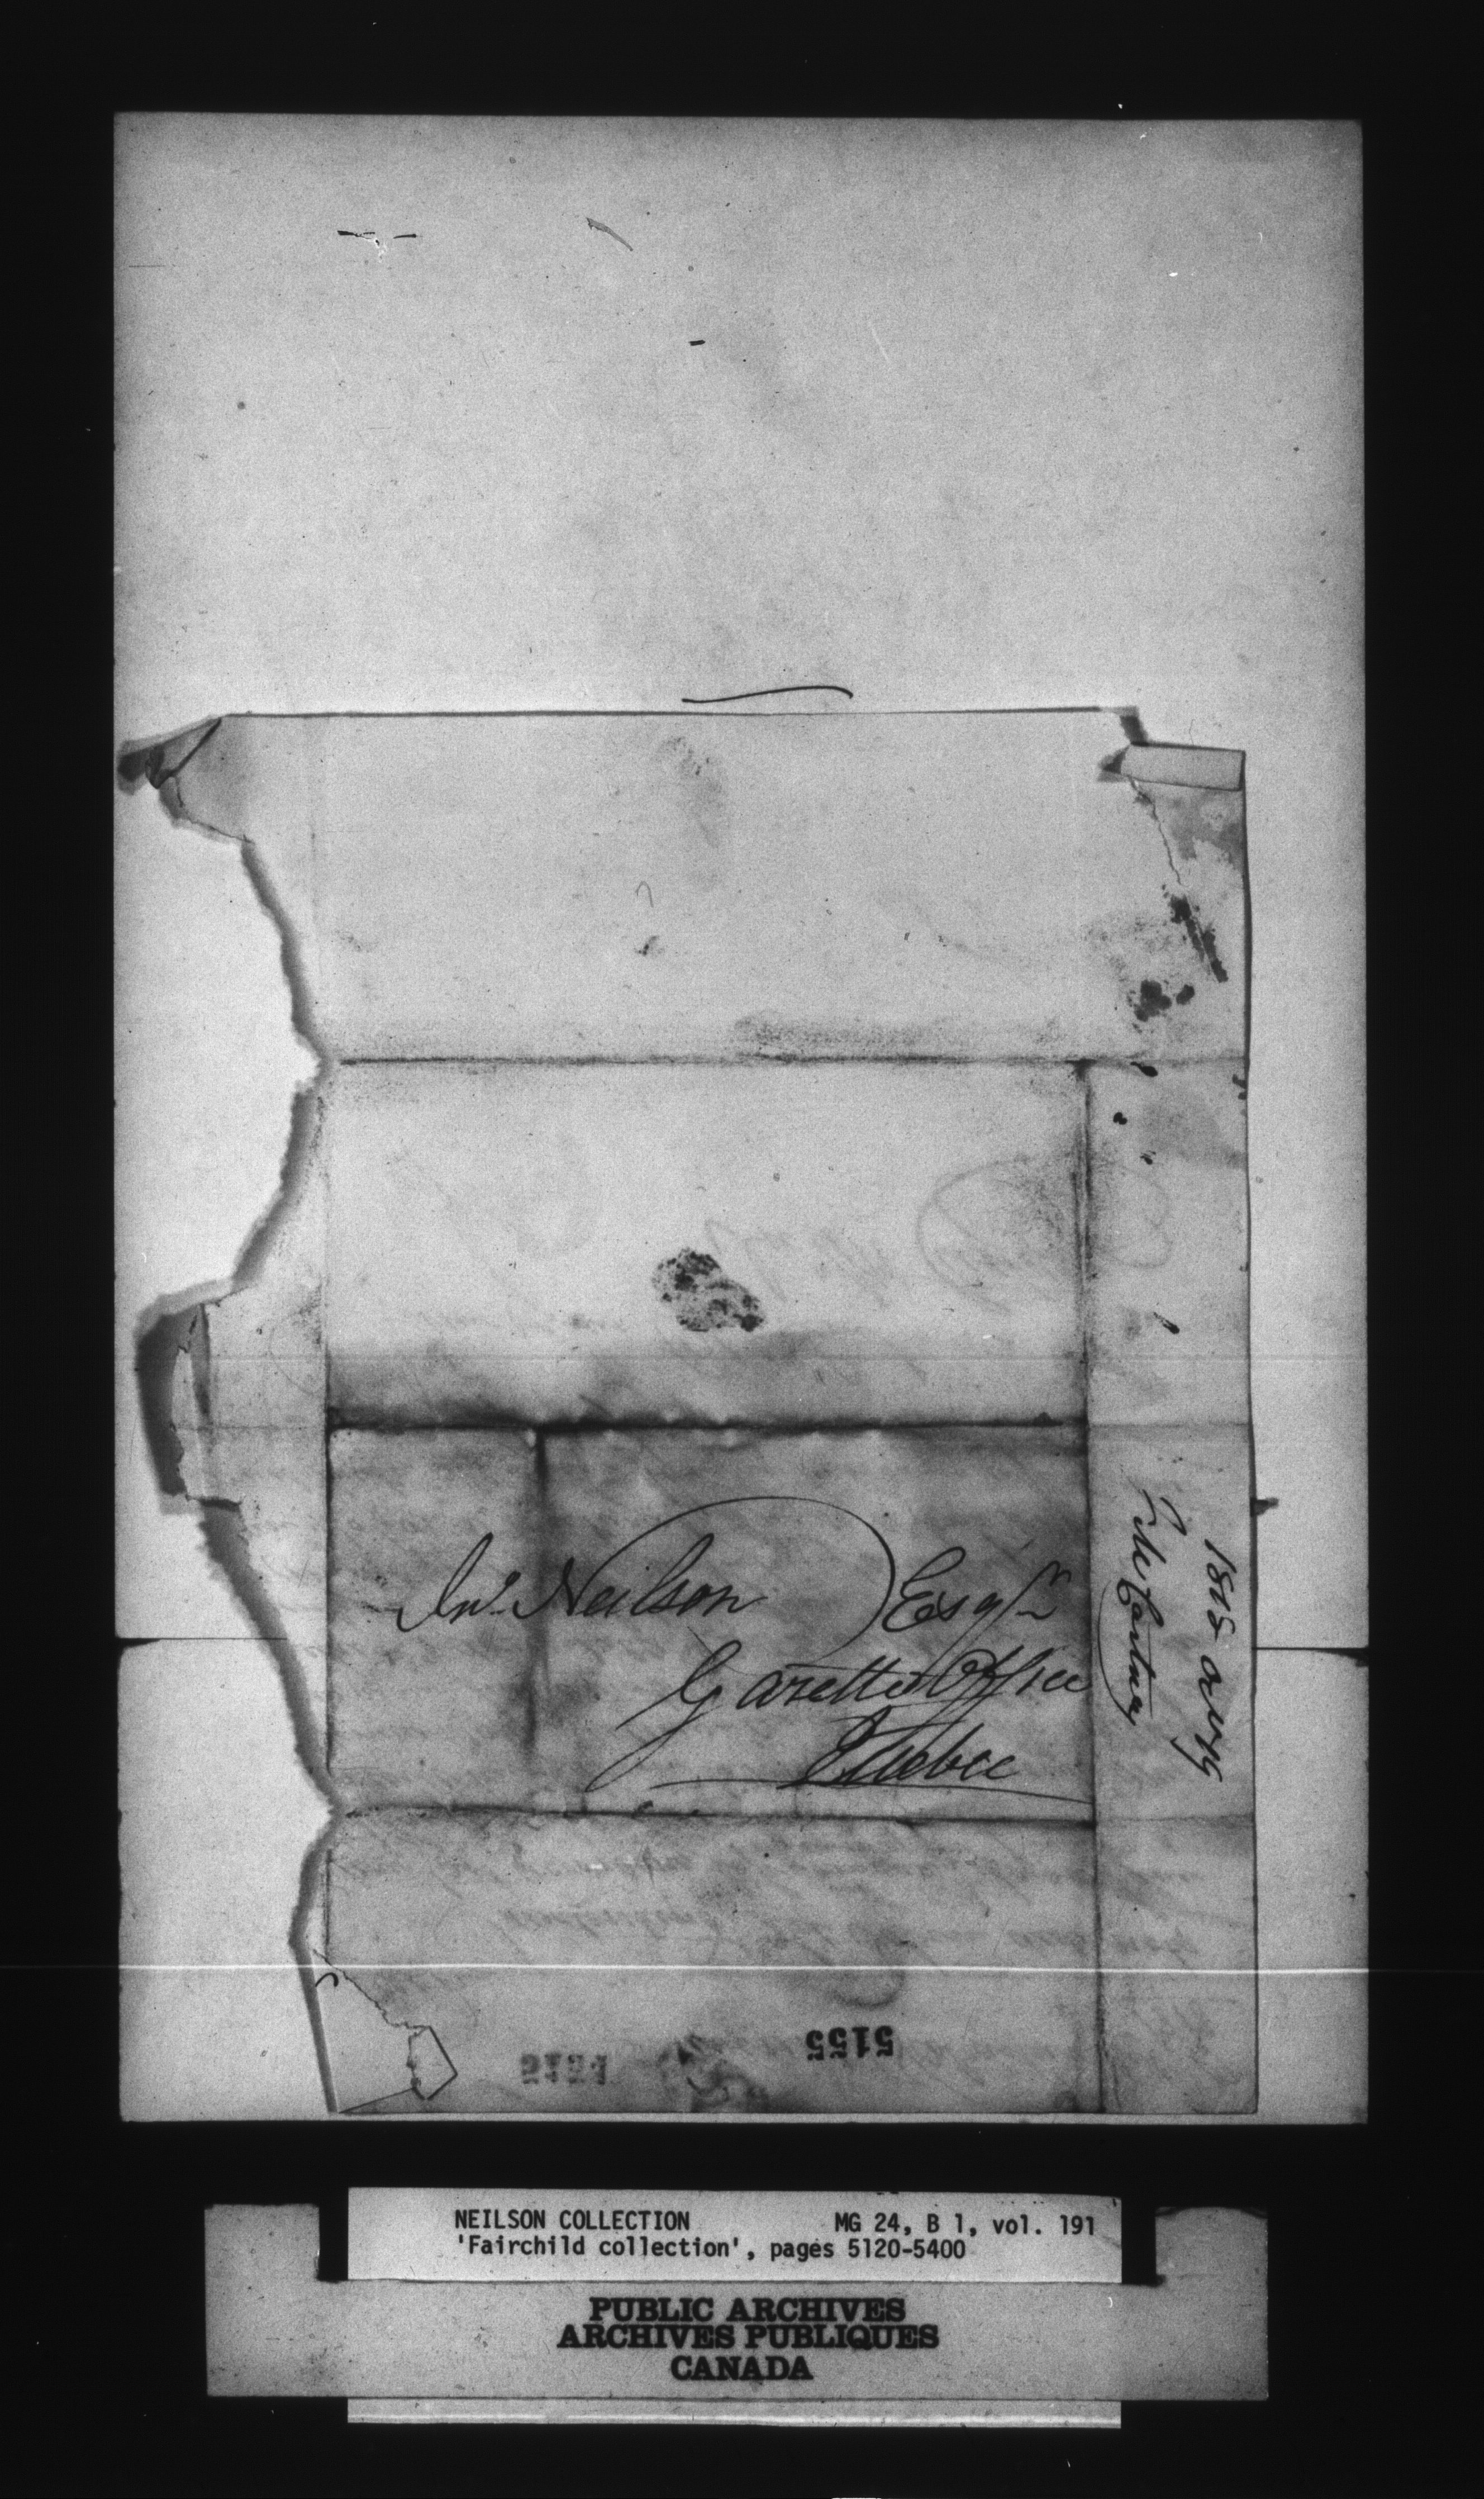 Jno. Neilson Esqr
Gazette Office
Quebec
1815
McCartney
5155
NEILSON COLLECTION MG 24, B 1, vol. 191
'Fairchild collection', pages 5120-5400
PUBLIC ARCHIVES
ARCHIVES PUBLIQUES
CANADA